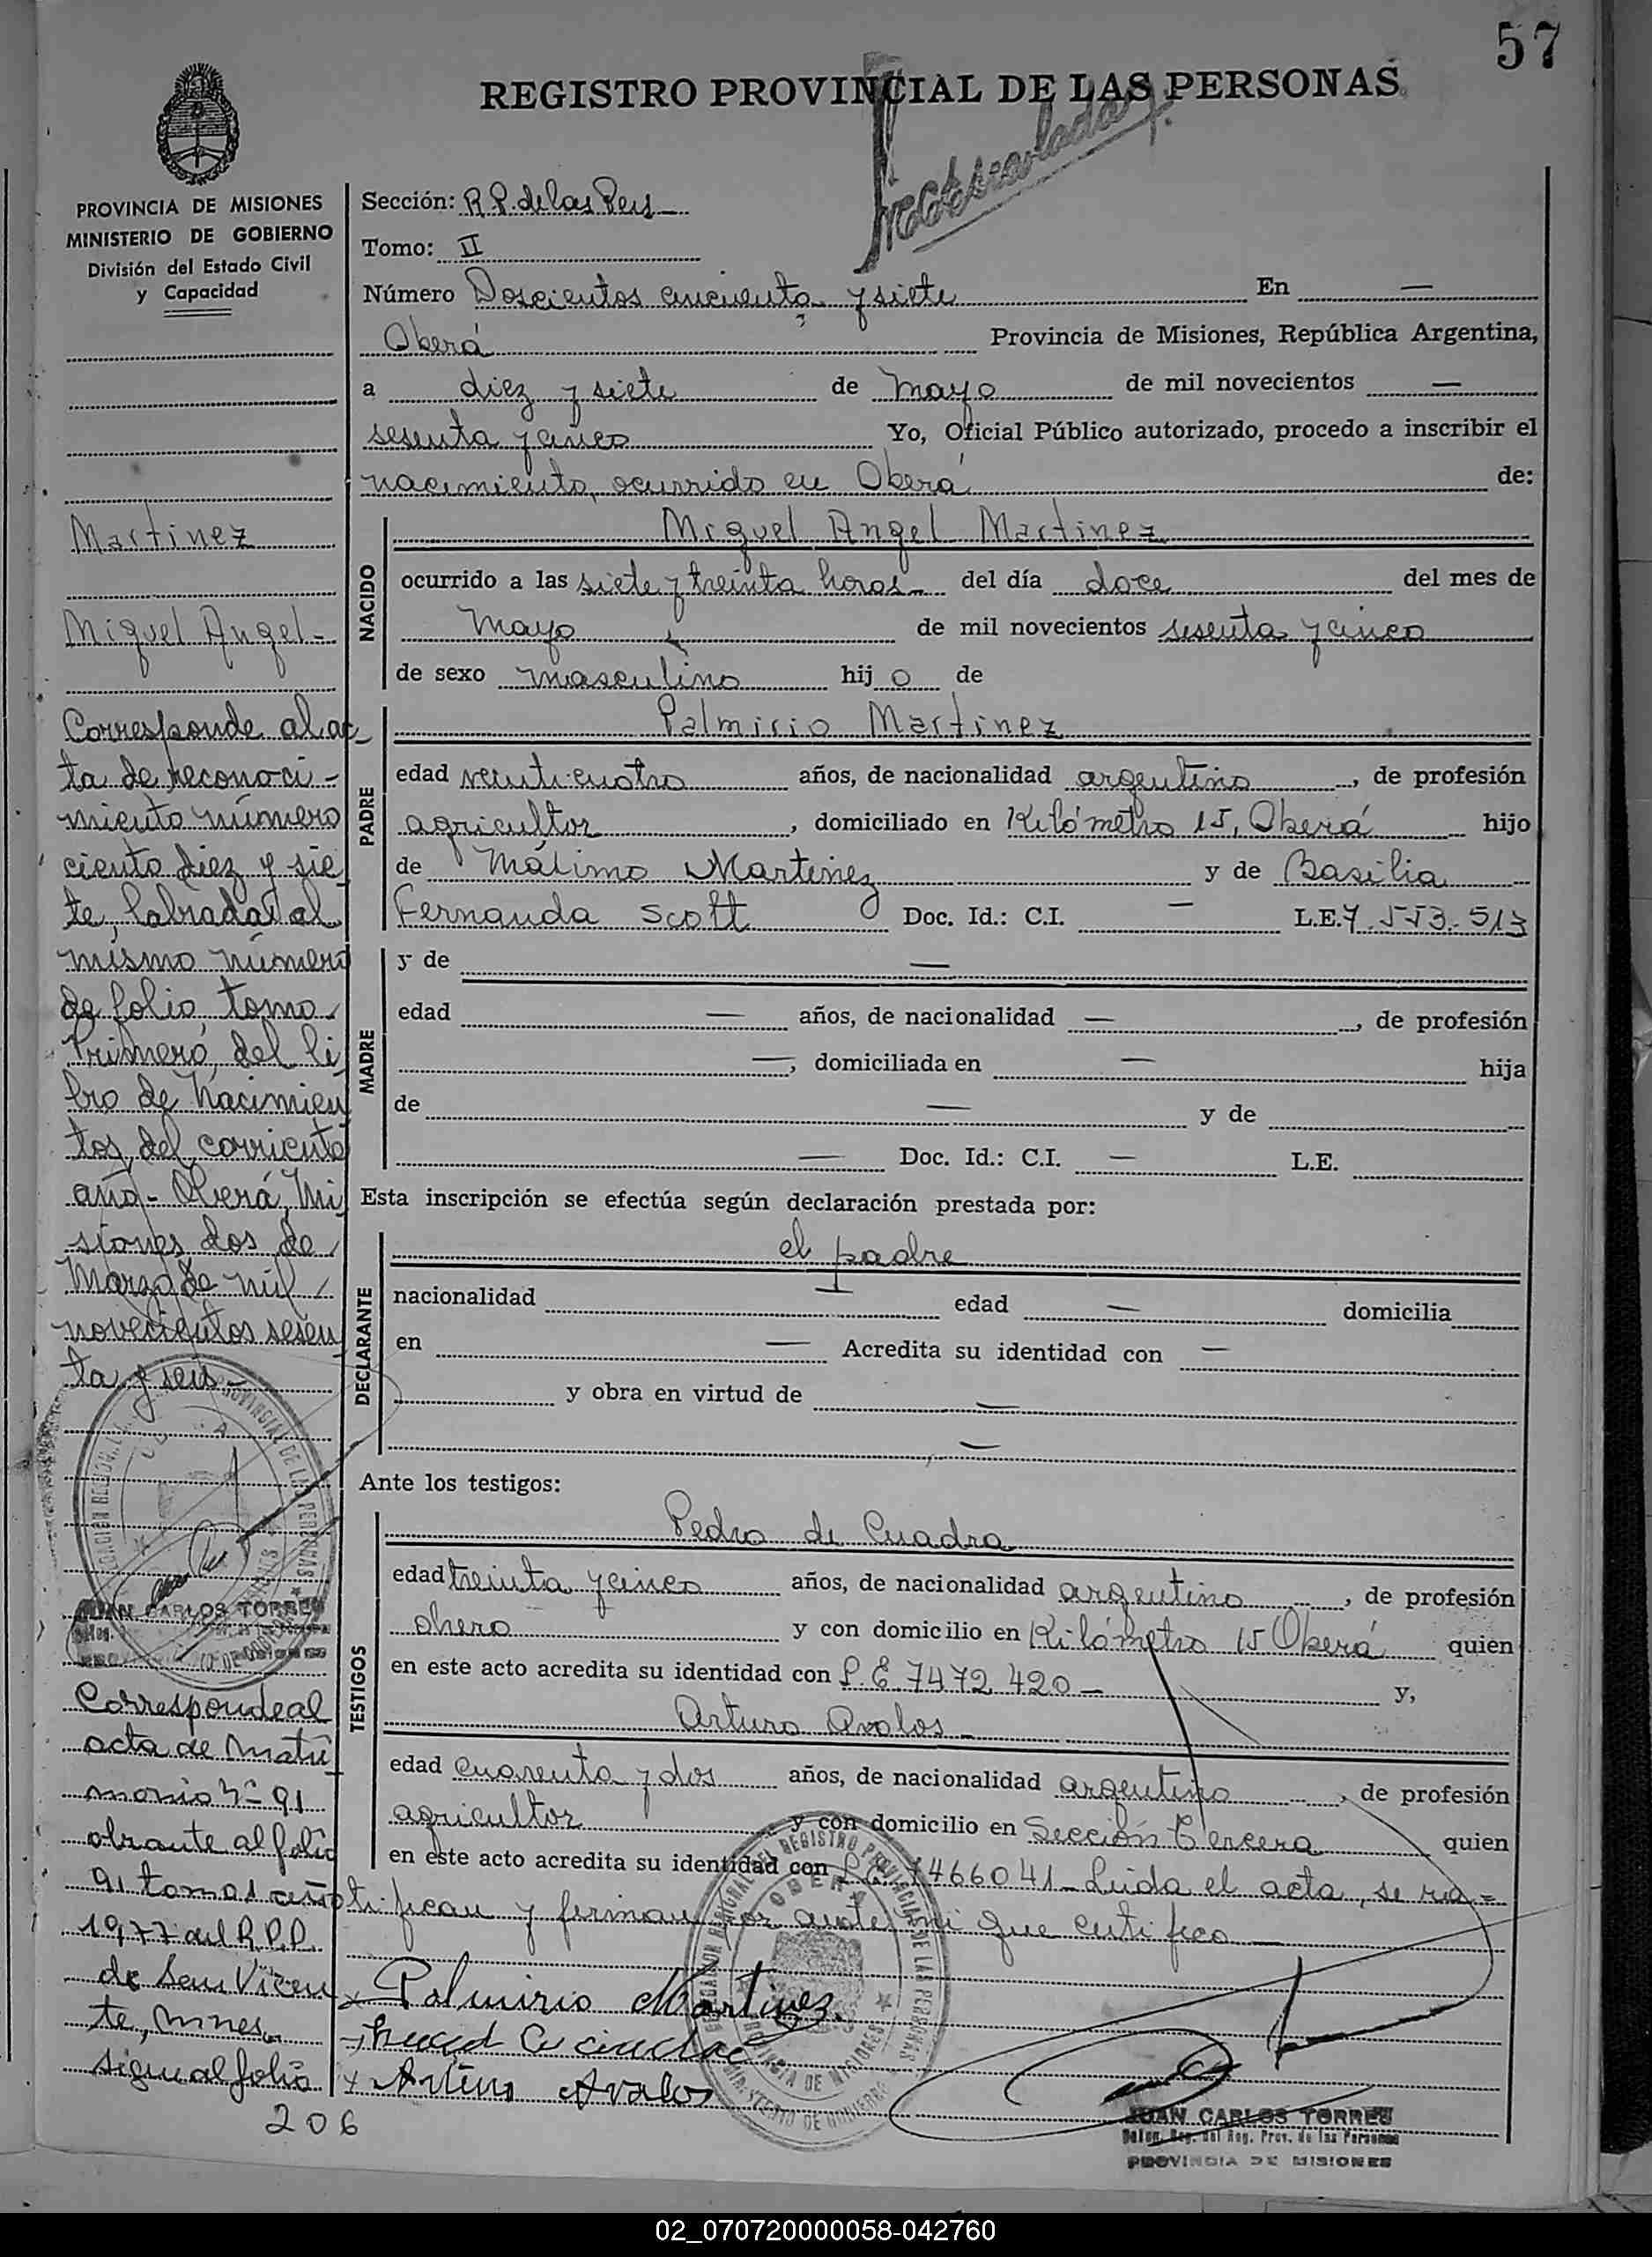 57
REGISTRO PROVINCIAL DE LAS PERSONAS
PROVINCIA DE MISIONES
MINISTERIO DE GOBIERNO
División del Estado Civil
y Capacidad
Martinez
Miguel Angel -
Corresponde al ac
ta de reconoci -
miento número
ciento diez y sie
te, labrada al
mismo número
de folio, tomo
Primero, del li
bro de Nacimien
tos, del corriente
año - Oberá, Mi
siones dos de
Marzo de mil
novecientos sesen
ta y seis -
JUAN CARLOS TORRES
Corresponde al
acta de Matri
monio Nº 91
obrante al folio
91 tomo 1 año
1977 del R.P.P.
de San Vicen
te, Mnes.
sigue al folio
206
Sección: R.P. de las Pers
Tomo: II
Número Doscientos cincuenta y siete En —
Oberá Provincia de Misiones, República Argentina,
a diez y siete de mayo de mil novecientos —
sesenta y cinco Yo, Oficial Público autorizado, procedo a inscribir el
nacimiento, ocurrido en Oberá de:
NACIDO
Miguel Angel Martinez
ocurrido a las siete y treinta horas - del día doce del mes de
mayo de mil novecientos sesenta y cinco
de sexo masculino hij o de
PADRE
Palmirio Martinez
edad veinticuatro años, de nacionalidad argentino, de profesión
agricultor, domiciliado en Kilómetro 15, Oberá hijo
de Máximo Martinez y de Basilia
Fernanda Scott Doc. Id.: C.I. — L.E. 7.553.513
MADRE
y de —
edad — años, de nacionalidad —, de profesión
—, domiciliada en — hija
de — y de
— Doc. Id.: C.I. — L.E.
Esta inscripción se efectúa según declaración prestada por:
DECLARANTE
el padre
nacionalidad — edad — domicilia
en — Acredita su identidad con —
y obra en virtud de —
—
Ante los testigos:
TESTIGOS
Pedro de Cuadra
edad treinta y cinco años, de nacionalidad argentino, de profesión
obrero y con domicilio en Kilómetro 15 Oberá quien
en este acto acredita su identidad con L.E 7472.420 - y,
Arturo Avalos
edad cuarenta y dos años, de nacionalidad argentino, de profesión
agricultor y con domicilio en Sección Tercera quien
en este acto acredita su identidad con L.E. 7466041 - Leida el acta, se ra=
tifican y firman por ante mi que certifico —
Palmirio Martinez
Arturo Avalos
JUAN CARLOS TORRES
Deleg. Reg. del Reg. Prov. de las Personas
PROVINCIA DE MISIONES
02_070720000058-042760